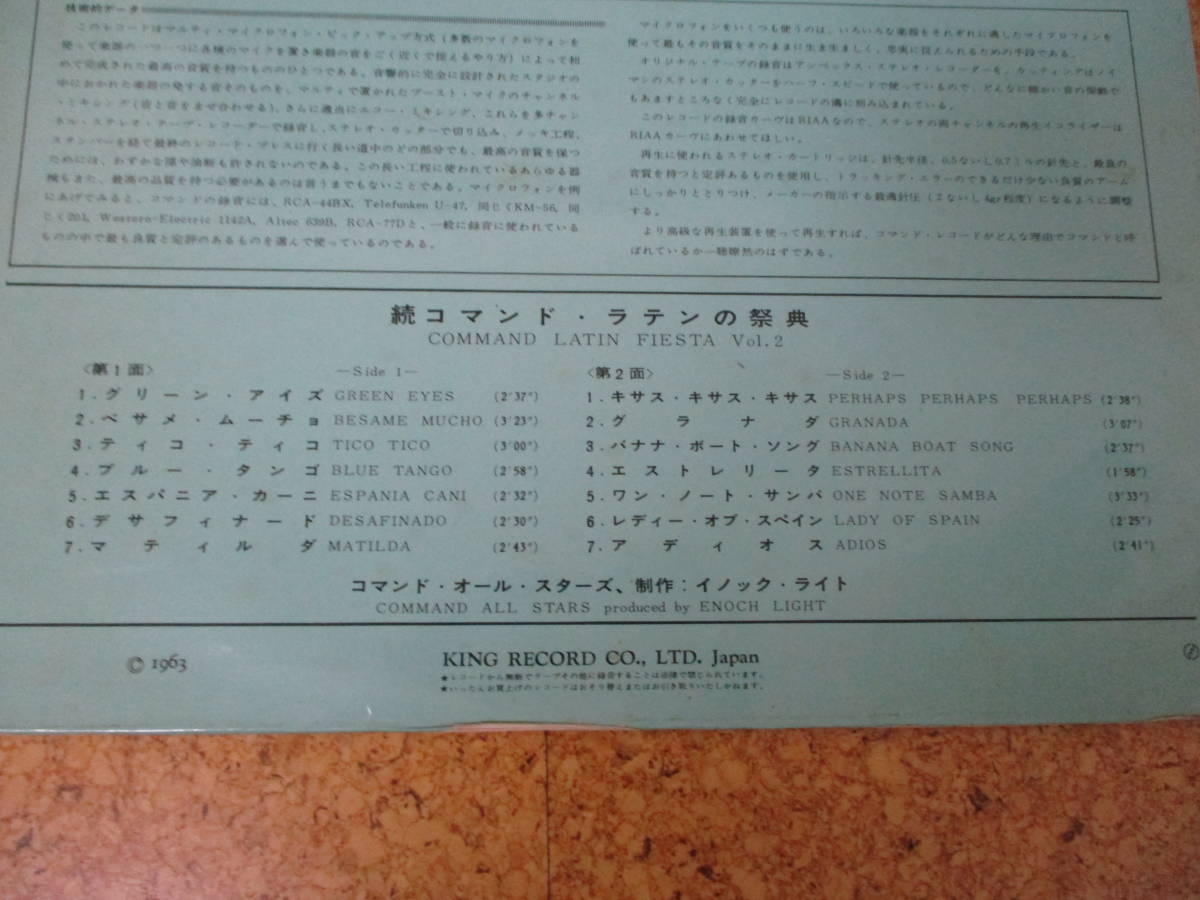 技術的データ
このレコードはマルティ・マイクロフォン・ピック・アップ方式(多数のマイクロフォンを
使って楽器の一つ一つに各種のマイクを置き楽器の音をごく近くで捉えるやり方)によって初
めて完成された最高の音質を持つもののひとつである。音響的に完全に設計されたスタジオの
中におかれた楽器の発する音そのものを、マルティで置かれたブースト・マイクのチャンネル
・ミキシング(音と音をまぜ合わせる)、さらに適当にエコー・ミキシング、これらを多チャン
ネル・ステレオ・テープ・レコーダーで録音し、ステレオ・カッターで切り込み、メッキ工程、
スタンパーを経て最終のレコード・プレスに行く長い道中のどの部分でも、最高の音質を保つ
ためには、わずかな隙や油断も許されないのである。この長い工程に使われているあらゆる器
械もまた、最高の品質を持つ必要があるのは言うまでもないことである。マイクロフォンを例
にあげてみると、コマンドの録音には、RCA-44BX, Telefunken U-47, 同じくKM-56, 同
じく201, Western-Electric 1142A, Altec 639B, RCA-77Dと、一般に録音に使われている
ものの中で最も良質と定評のあるものを選んで使っているのである。
マイクロフォンをいくつも使うのは、いろいろな楽器をそれぞれに適したマイクロフォンを
使って最もその音質をそのままに生き生ましく、忠実に捉えられるための手段である。
オリジナル・テープの録音はアンペックス・ステレオ・レコーダーを、カッティングはノイ
マンのステレオ・カッターをハーフ・スピードで使っているので、どんなに細かい音の振動で
もあますところなく完全にレコードの溝に刻み込まれている。
このレコードの録音カーヴはRIAAなので、ステレオの両チャンネルの再生イコライザーは
RIAAカーヴにあわせてほしい。
再生に使われるステレオ・カートリッジは、針先半径、0.5ないし0.7ミルの針先と、最良の
音質を持つと定評あるものを使用し、トラッキング・エラーのできるだけ少ない良質のアーム
にしっかりととりつけ、メーカーの指示する最適針圧(2ないし6gr程度)になるように調整
する。
より高級な再生装置を使って再生すれば、コマンド・レコードがどんな理由でコマンドと呼
ばれているか一聴瞭然のはずである。
続コマンド・ラテンの祭典
COMMAND LATIN FIESTA Vol.2
〈第1面〉 —Side 1—
1.グリーン・アイズ GREEN EYES (2'37")
2.ベサメ・ムーチョ BESAME MUCHO (3'23")
3.ティコ・ティコ TICO TICO (3'00")
4.ブルー・タンゴ BLUE TANGO (2'58")
5.エスパニア・カーニ ESPANIA CANI (2'32")
6.デサフィナード DESAFINADO (2'30")
7.マティルダ MATILDA (2'43")
〈第2面〉 —Side 2—
1.キサス・キサス・キサス PERHAPS PERHAPS PERHAPS (2'38")
2.グラナダ GRANADA (3'07")
3.バナナ・ボート・ソング BANANA BOAT SONG (2'37")
4.エストレリータ ESTRELLITA (1'58")
5.ワン・ノート・サンバ ONE NOTE SAMBA (3'33")
6.レディー・オブ・スペイン LADY OF SPAIN (2'25")
7.アディオス ADIOS (2'41")
コマンド・オール・スターズ、制作:イノック・ライト
COMMAND ALL STARS produced by ENOCH LIGHT
© 1963
KING RECORD CO., LTD. Japan
★レコードから無断でテープその他に録音することは法律で禁じられています。
★いったんお買上げのレコードはおとり替えまたはお引き取りいたしかねます。